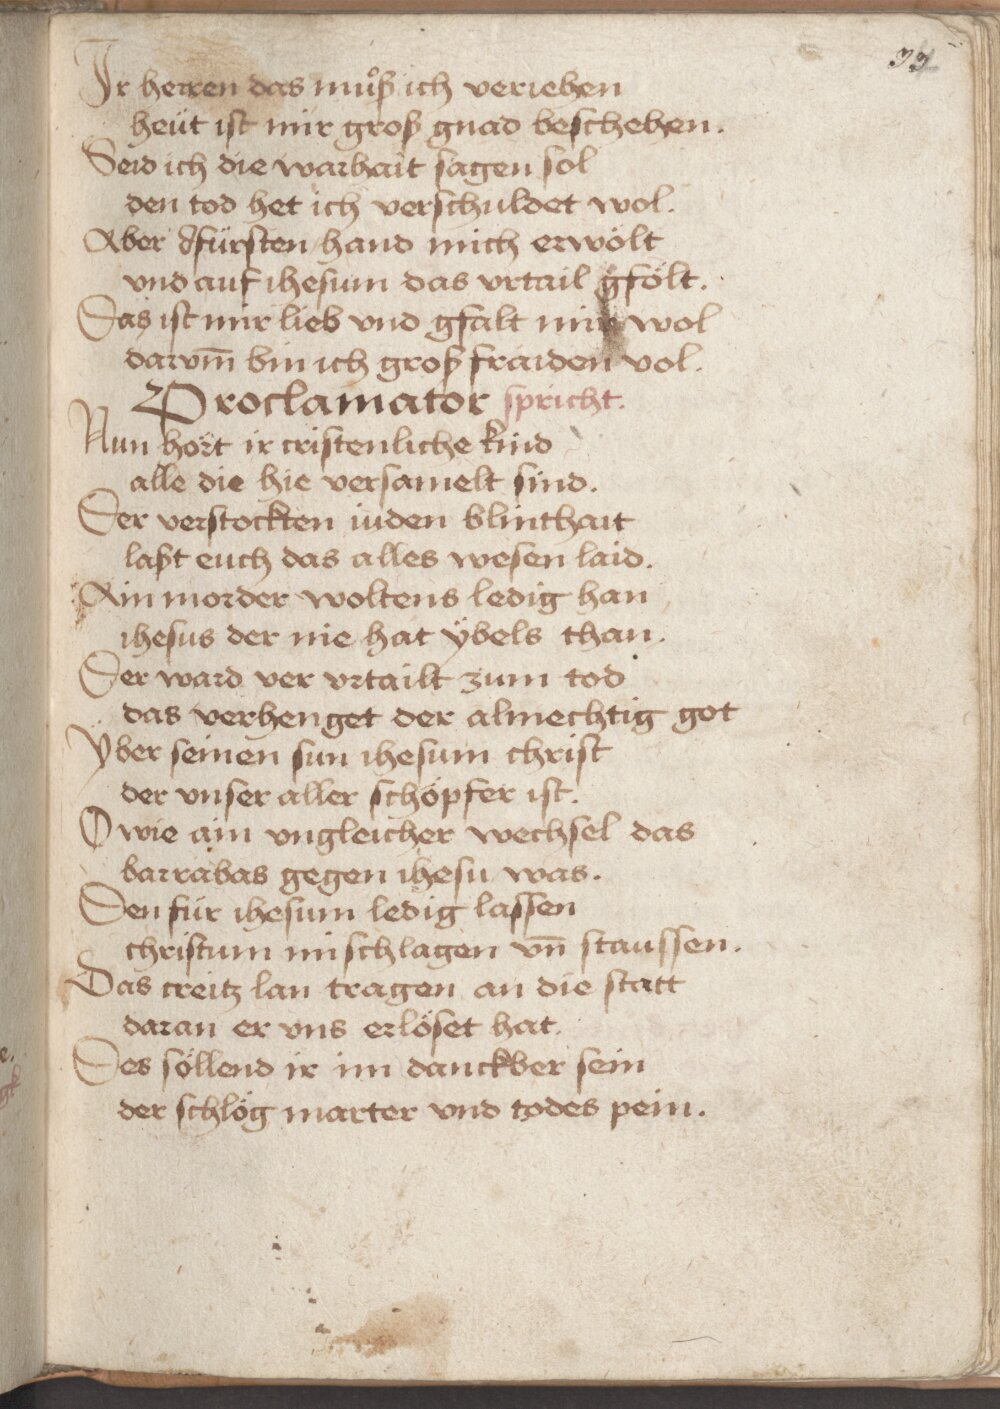 33
Ir herren das muͦß ich veriehen
heüt ist mir groß gnad beschehen.
Seid ich die warhait sagen sol
den tod het ich verschuldet wol.
Aber dfürsten hand mich erwölt
vnd auf ihesum das vrtail gfölt.
Das ist mir lieb vnd gfalt mir wol
darum̄ bin ich groß fraiden vol.
Proclamator spricht.
Nun hört ir cristenliche kind
alle die hie versamelt sind.
Der verstockten iuden blinthait
laßt euch das alles wesen laid.
Ain morder woltens ledig han
ihesus der nie hat ÿbels than.
Der ward ver vrtailt zum tod
das verhenget der almechtig got
Yber seinen sun ihesum christ
der vnser aller schöpfer ist.
O wie ain vngleicher wechsel das
barrabas gegen ihesu was.
Den für ihesum ledig lassen
christum mi schlagen vn̄ staussen.
Das creitz lan tragen an die statt
daran er vns erlöset hat.
Des söllend ir im danckber sein
der schlög marter vnd todes pein.